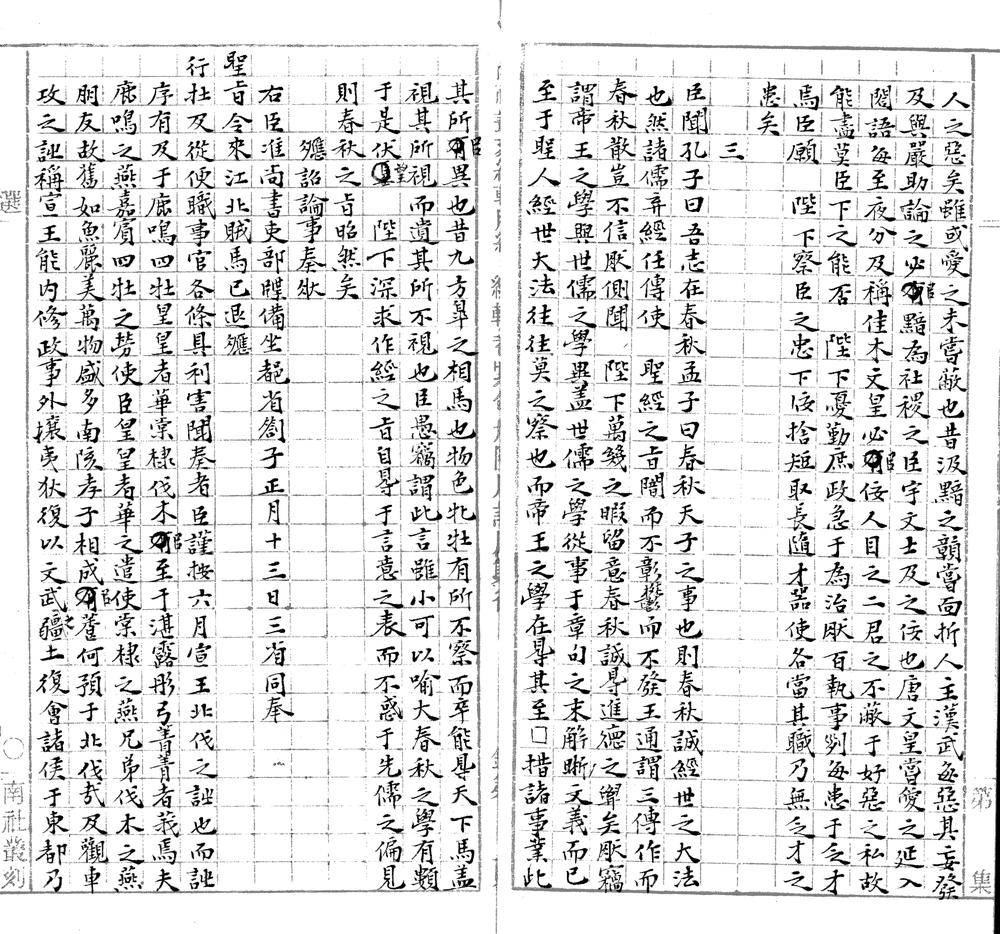 人之惡矣雖或愛之未嘗蔽也昔汲黯之戇嘗面折人主漢武每惡其妄發
及與嚴助論之必曰黯為社稷之臣宇文士及之佞也唐文皇嘗愛之延入
閣語每至夜分及稱佳木文皇必曰佞人目之二君之不蔽于好惡之私故
能盡莫臣下之能否 陛下憂勤庶政急于為治厥百執事列每患于乏才
焉臣願 陛下察臣之忠下佞捨短取長隨才器使各當其職乃無乏才之
患矣
三
臣聞孔子曰吾志在春秋孟子曰春秋天子之事也則春秋誠經世之大法
也然諸儒弃經任傳使 聖經之旨闇而不彰鬱而不發王通謂三傳作而
春秋散豈不信厥側聞 陛下萬幾之暇留意春秋誠㝵進德之聖矣厥竊
謂帝王之學與世儒之學異蓋世儒之學從事于章句之末解晰文義而已
至于聖人經世大法往往莫之察也而帝王之學在㝵其至□措諸事業此
其所㠯異也昔九方臯之相馬也物色牝牡有所不察而卒能㝵天下馬蓋
視其所視而遺其所不視也臣愚竊謂此言雖小可以喻大春秋之學有類
于是伏望 陛下深求作經之旨自㝵于言意之表而不惑于先儒之偏見
則春秋之旨昭然矣
應詔論事奏狀
右臣准尚書吏部牒備坐都省劄子正月十三日三省同奉
聖旨今來江北賊馬已退應
行在及從便職事官各條具利害聞奏者臣謹按六月宣王北伐之詩也而詩
序有及于鹿鳴四牡皇皇者華棠棣伐木㠯至于湛露彤弓菁菁者莪焉夫
鹿鳴之燕嘉賓四牡之勞使臣皇皇者華之遣使棠棣之燕兄弟伐木之燕
朋友故舊如魚麗美萬物盛多南陔孝子相成㠯養何預于北伐哉及觀車
攻之詩稱宣王能內修政事外攘夷狄復以文武之疆土復會諸侯于東都乃
第 集
選
○
南社叢刻